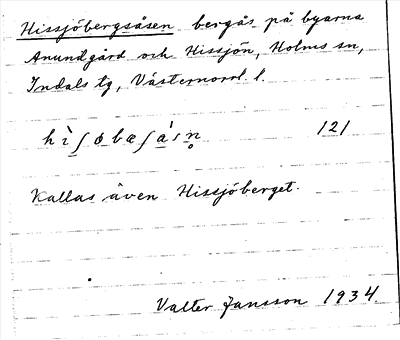 Hissjöbergsåsen bergås på byarna
Anundgård och Hissjön, Holms sn,
Indals tg, Västernorrl. l.
hìʃøbæʃásn̥ 121
Kallas även Hissjöberget.
Valter Jansson 1934.